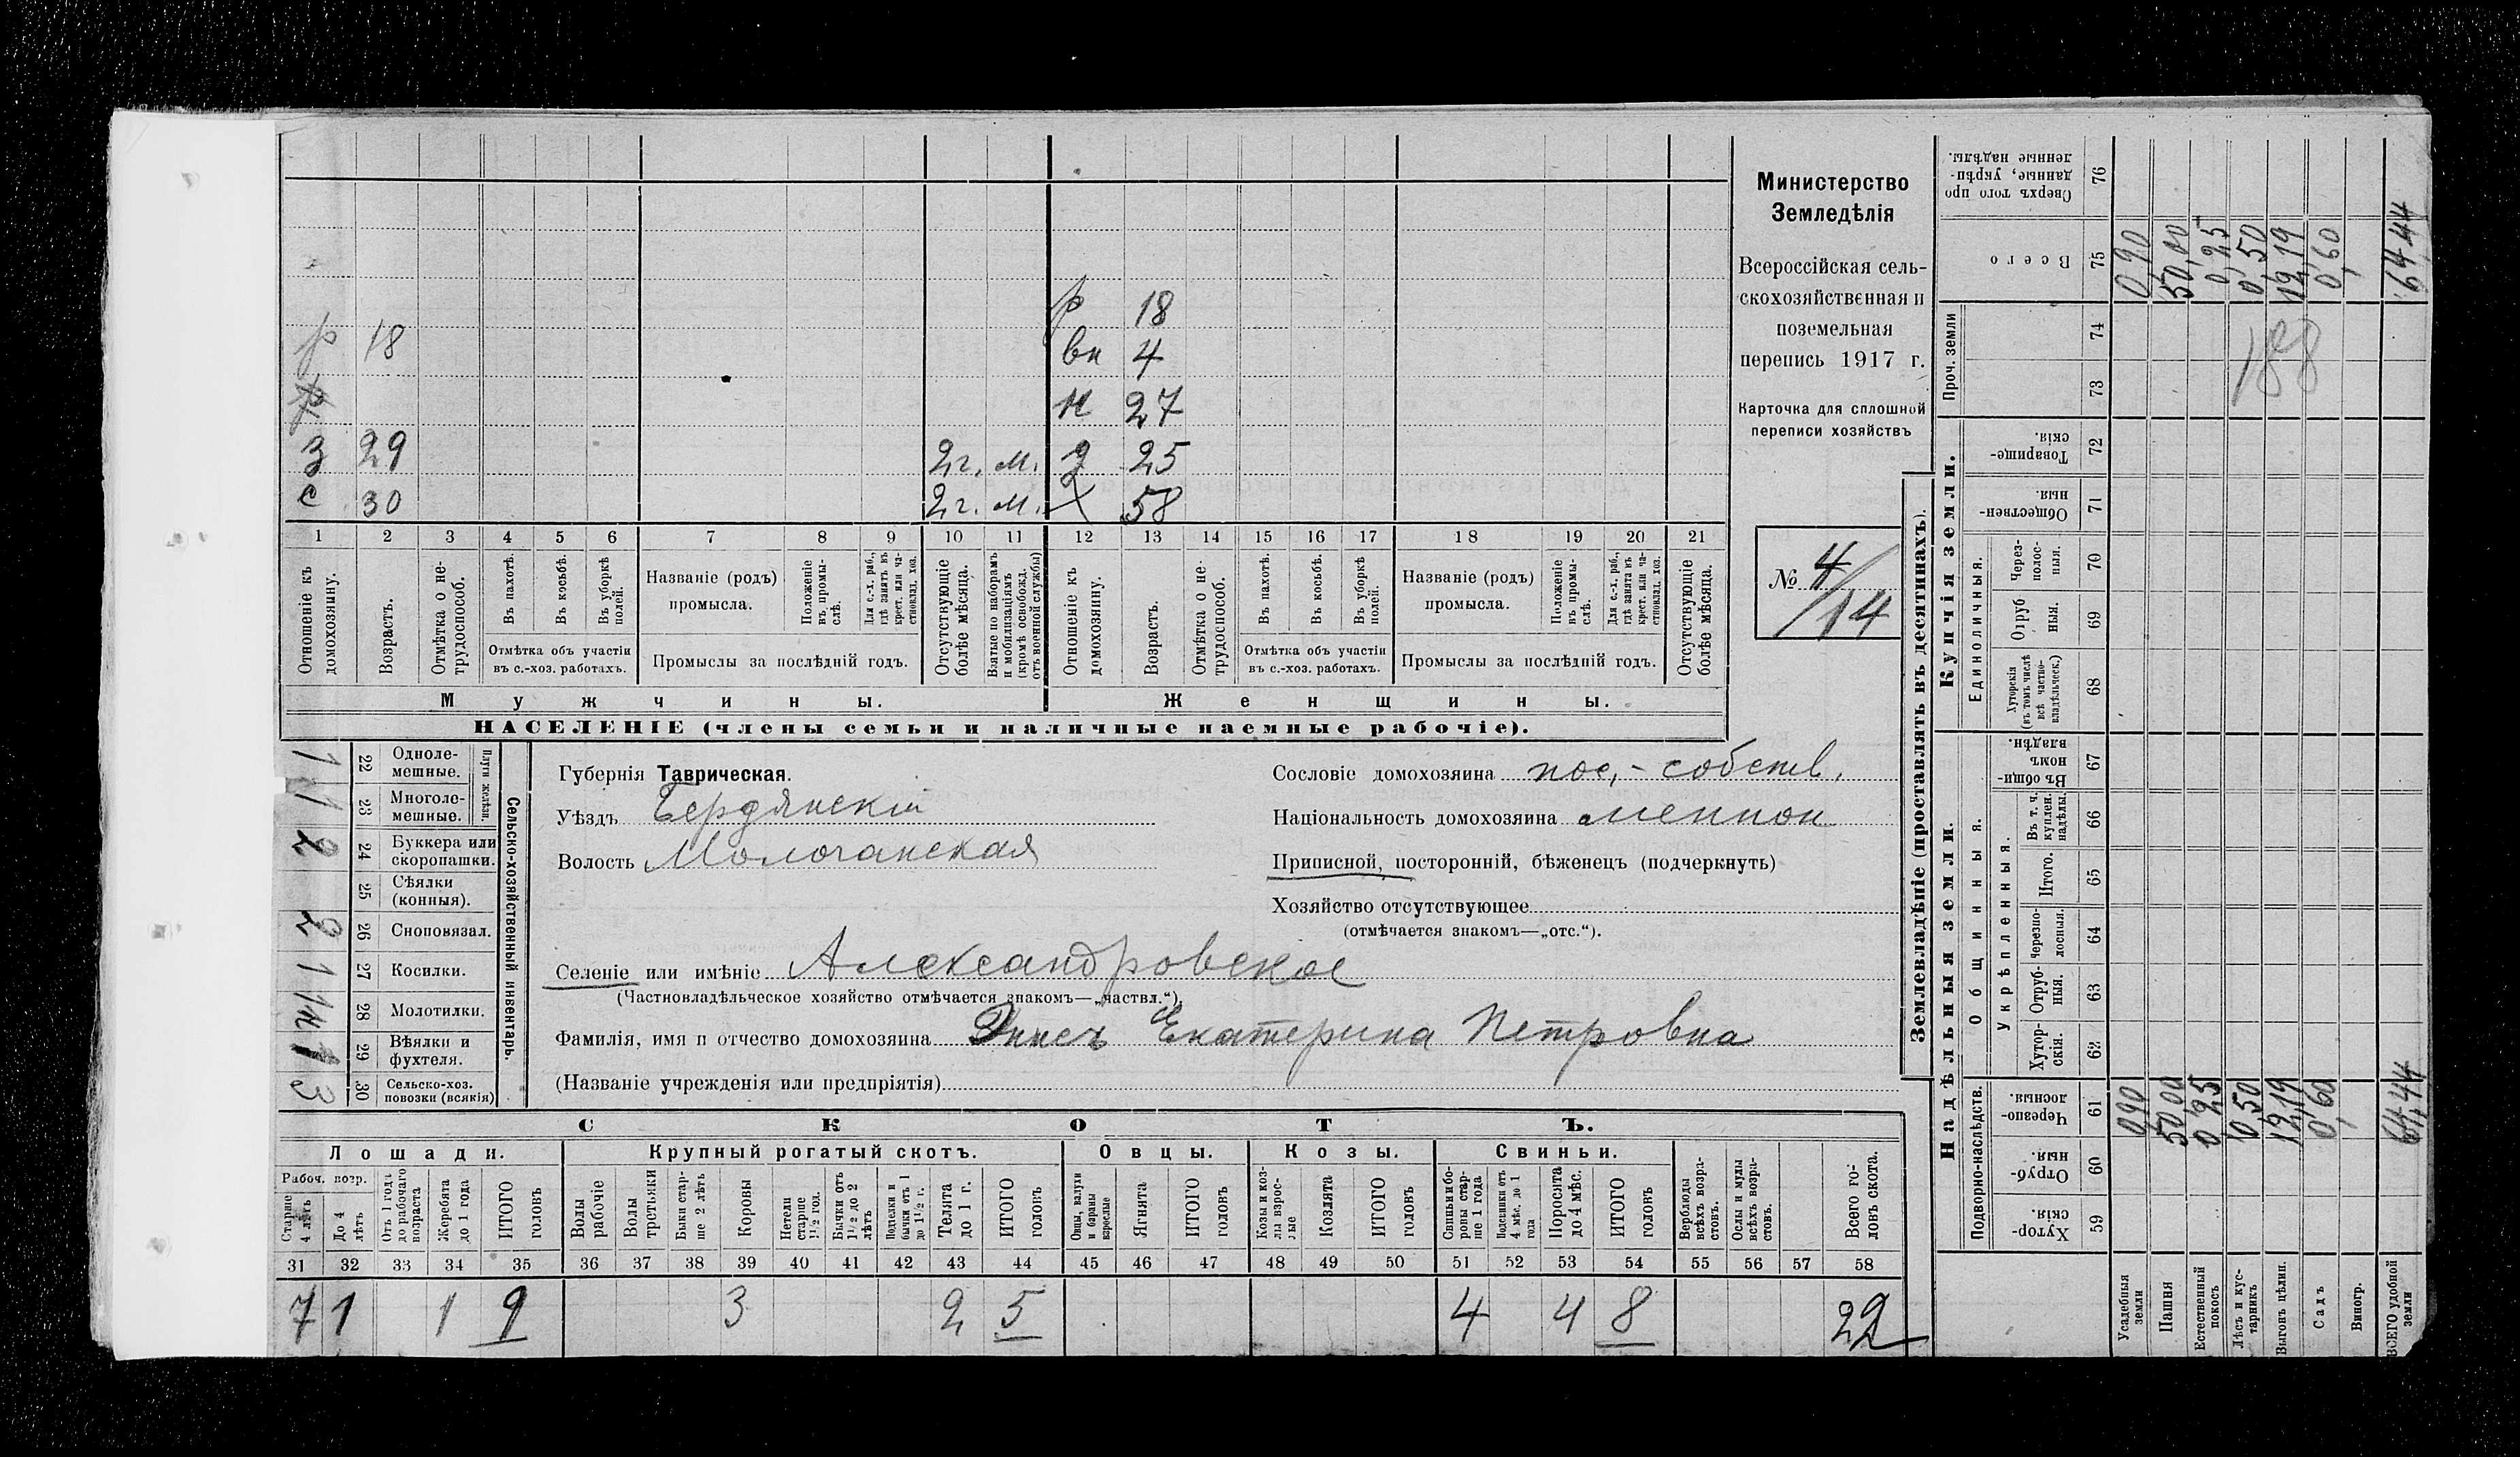 Министерство
Земледѣлія
Всероссійская сель-
скохозяйственная и
поземельная
перепись 1917 г.
Карточка для сплошной
переписи хозяйствъ
№ 4/14
р 18
вн 4
р 18
н 27
р
з 29 2г. м. д 25
с 30 2г. м. X 58
1 2 3 4 5 6 7 8 9 10 11 12 13 14 15 16 17 18 19 20 21
Отношеніе къ домохозяину.
Возрастъ.
Отмѣтка о не-трудоспособ.
Въ пахотѣ.
Въ косьбѣ.
Въ уборкѣ полей.
Отмѣтка объ участіи
въ с.-хоз. работахъ.
Названіе (родъ)
промысла.
Положеніе въ промы-слѣ.
Для с.-х. раб., гдѣ занятъ въ крест. или ча-стновлад. хоз.
Промыслы за послѣдній годъ.
Отсутствующіе болѣе мѣсяца.
Взятые по наборамъ и мобилизаціямъ (кромѣ освобожд. отъ военной службы)
Отношеніе къ домохозяину.
Возрастъ.
Отмѣтка о не-трудоспособ.
Въ пахотѣ.
Въ косьбѣ.
Въ уборкѣ полей.
Отмѣтка объ участіи
въ с.-хоз. работахъ.
Названіе (родъ)
промысла.
Положеніе въ промы-слѣ.
Для с.-х. раб., гдѣ занята въ крест. или ча-стновлад. хоз.
Промыслы за послѣдній годъ.
Отсутствующіе болѣе мѣсяца.
Мужчины. Женщины.
НАСЕЛЕНІЕ (члены семьи и наличные наемные рабочіе).
Сельско-хозяйственный инвентарь.
Плуги желѣзн.
1 22 Одноле-мешные.
1 23 Многоле-мешные.
2 24 Буккера или скоропашки.
25 Сѣялки (конныя).
2 26 Сноповязал.
1 27 Косилки.
28 Молотилки.
1 29 Вѣялки и фухтеля.
3 30 Сельско-хоз. повозки (всякія)
Губернія Таврическая.
Уѣздъ Бердянскій
Волость Молочанская
Сословіе домохозяина пос,- собств.
Національность домохозяина меннон
Приписной, посторонній, бѣженецъ (подчеркнуть)
Хозяйство отсутствующее
(отмѣчается знакомъ—„отс.“).
Селеніе или имѣніе Александровское
(Частновладѣльческое хозяйство отмѣчается знакомъ—„частвл.“).
Фамилія, имя и отчество домохозяина Эннсъ Екатерина Петровна
(Названіе учрежденія или предпріятія)
СКОТЪ.
Лошади. Крупный рогатый скотъ. Овцы. Козы. Свиньи.
Рабоч. возр.
Старше 4 лѣтъ
До 4 лѣтъ
Отъ 1 года до рабочаго возраста
Жеребята до 1 года
ИТОГО головъ
Волы рабочіе
Волы третьяки
Быки стар-ше 2 лѣтъ
Коровы
Нетели старше 1½ год.
Бычки отъ 1½ до 2 лѣтъ
Подтелки и бычки отъ 1 до 1½ г.
Телята до 1 г.
ИТОГО головъ
Овцы, валухи и бараны взрослые
Ягнята
ИТОГО головъ
Козы и коз-лы взрос-лые
Козлята
ИТОГО головъ
Свиньи и бо-ровы стар-ше 1 года
Подсвинки отъ 4 мѣс. до 1 года
Поросята до 4 мѣс.
ИТОГО головъ
Верблюды всѣхъ возра-стовъ.
Ослы и мулы всѣхъ возра-стовъ.
Всего го-ловъ скота.
31 32 33 34 35 36 37 38 39 40 41 42 43 44 45 46 47 48 49 50 51 52 53 54 55 56 57 58
7 1 1 9 3 2 5 4 4 8 22
Землевладѣніе (проставлять въ десятинахъ).
Надѣльныя земли.
Подворно-наслѣдств.
Хутор-скія. 59
Отруб-ныя. 60
Черезпо-лосныя. 61
Общинныя.
Укрѣпленныя.
Хутор-скія. 62
Отруб-ныя. 63
Черезпо-лосныя. 64
Итого. 65
Въ т. ч. куплен. надѣлы. 66
Въ общи-номъ владѣн. 67
Купчія земли.
Единоличныя.
Хуторскія (въ томъ числѣ всѣ частно-владѣльческ.) 68
Отруб ныя. 69
Через-полос-ныя. 70
Обществен-ныя. 71
Товарище-скія. 72
Проч. земли
73
74
Всего 75
Сверхъ того про данные, укрѣп-ленные надѣлы. 76
Усадебныя земли 0,90 0,90
Пашня 50,00 50,00
Естественный покосъ 0,25 0,25
Лѣсъ и кус-тарникъ 0,50 0,50
Выгонъ цѣлин. 12,19 12,19
Садъ 0,60 0,60
Виногр.
ВСЕГО удобной земли 64,44 64,44
188